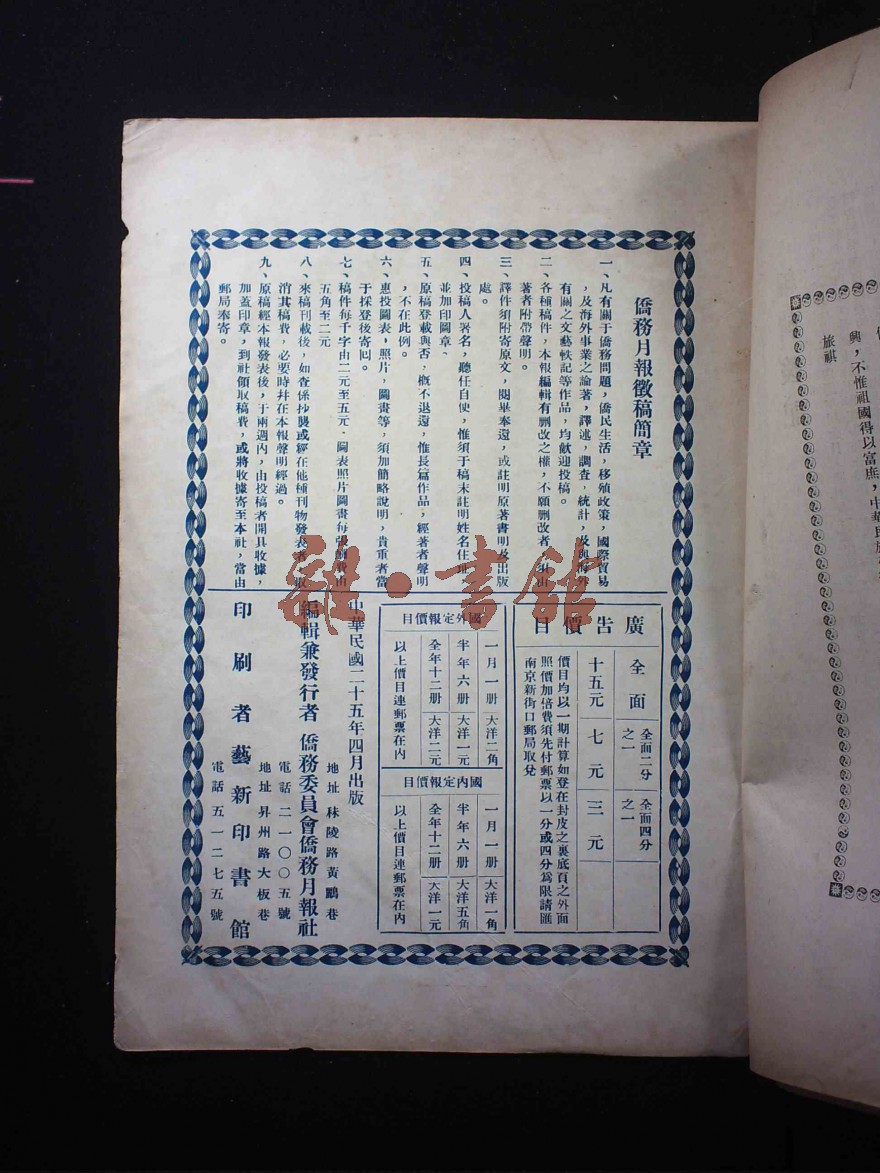 僑務月報徵稿簡章
一、凡有關于僑務問題，僑民生活，移殖政策，國際貿易
，及海外事業之論著，譯述，調查，統計，及與海外
有關之文藝軼記等作品，均獻迎投稿。
二、各種稿件，本報編輯有刪改之權，不願刪改者，須由
著者附帶聲明。
三、譯件須附寄原文，閱畢奉還，或註明原著書明及出版
處。
四、投稿人署名，聽任自便，惟須于稿末註明姓名住址
並加印圖章、
五、原稿登載與否，概不退還，惟長篇作品，經著者聲明
，不在此例。
六、惠投圖表，照片，圖畫等，須加簡略說明，貴重者當
于採登後寄囘。
七、稿件每千字由二元至五元、圖表照片圖畫每張酬費由
五角至二元
八、來稿刊載後，如查係抄襲或經在他種刊物發表者，取
消其稿費，必要時幷在本報聲明經過。
九、原稿經本報發表後，于兩週內，由投稿者開具收據，
加蓋印章，到社領取稿費，或將收據寄至本社，當由
郵局奉寄。
廣告價目
全面
全面二分之一
全面四分之一
十五元
七元
三元
價目均以一期計算如登在封皮之裏底頁之外面
照價加倍費須先付郵票以一分或四分爲限請匯
南京新街口郵局取兌
國外定報價目
一月一册 大洋二角
半年六册 大洋一元
全年十二册 大洋二元
以上價目連郵票在內
國內定報價目
一月一册 大洋一角
半年六册 大洋五角
全年十二册 大洋一元
以上價目連郵票在內
中華民國二十五年四月出版
地址 秣陵路黃鸝巷
編輯兼發行者 僑務委員會僑務月報社
電話 二一〇〇五號
地址 昇州路大板巷
印刷者藝新印書館
電話 五一二七五號
雜·書館
興，不惟祖國得以富庶，中華民族
旅祺